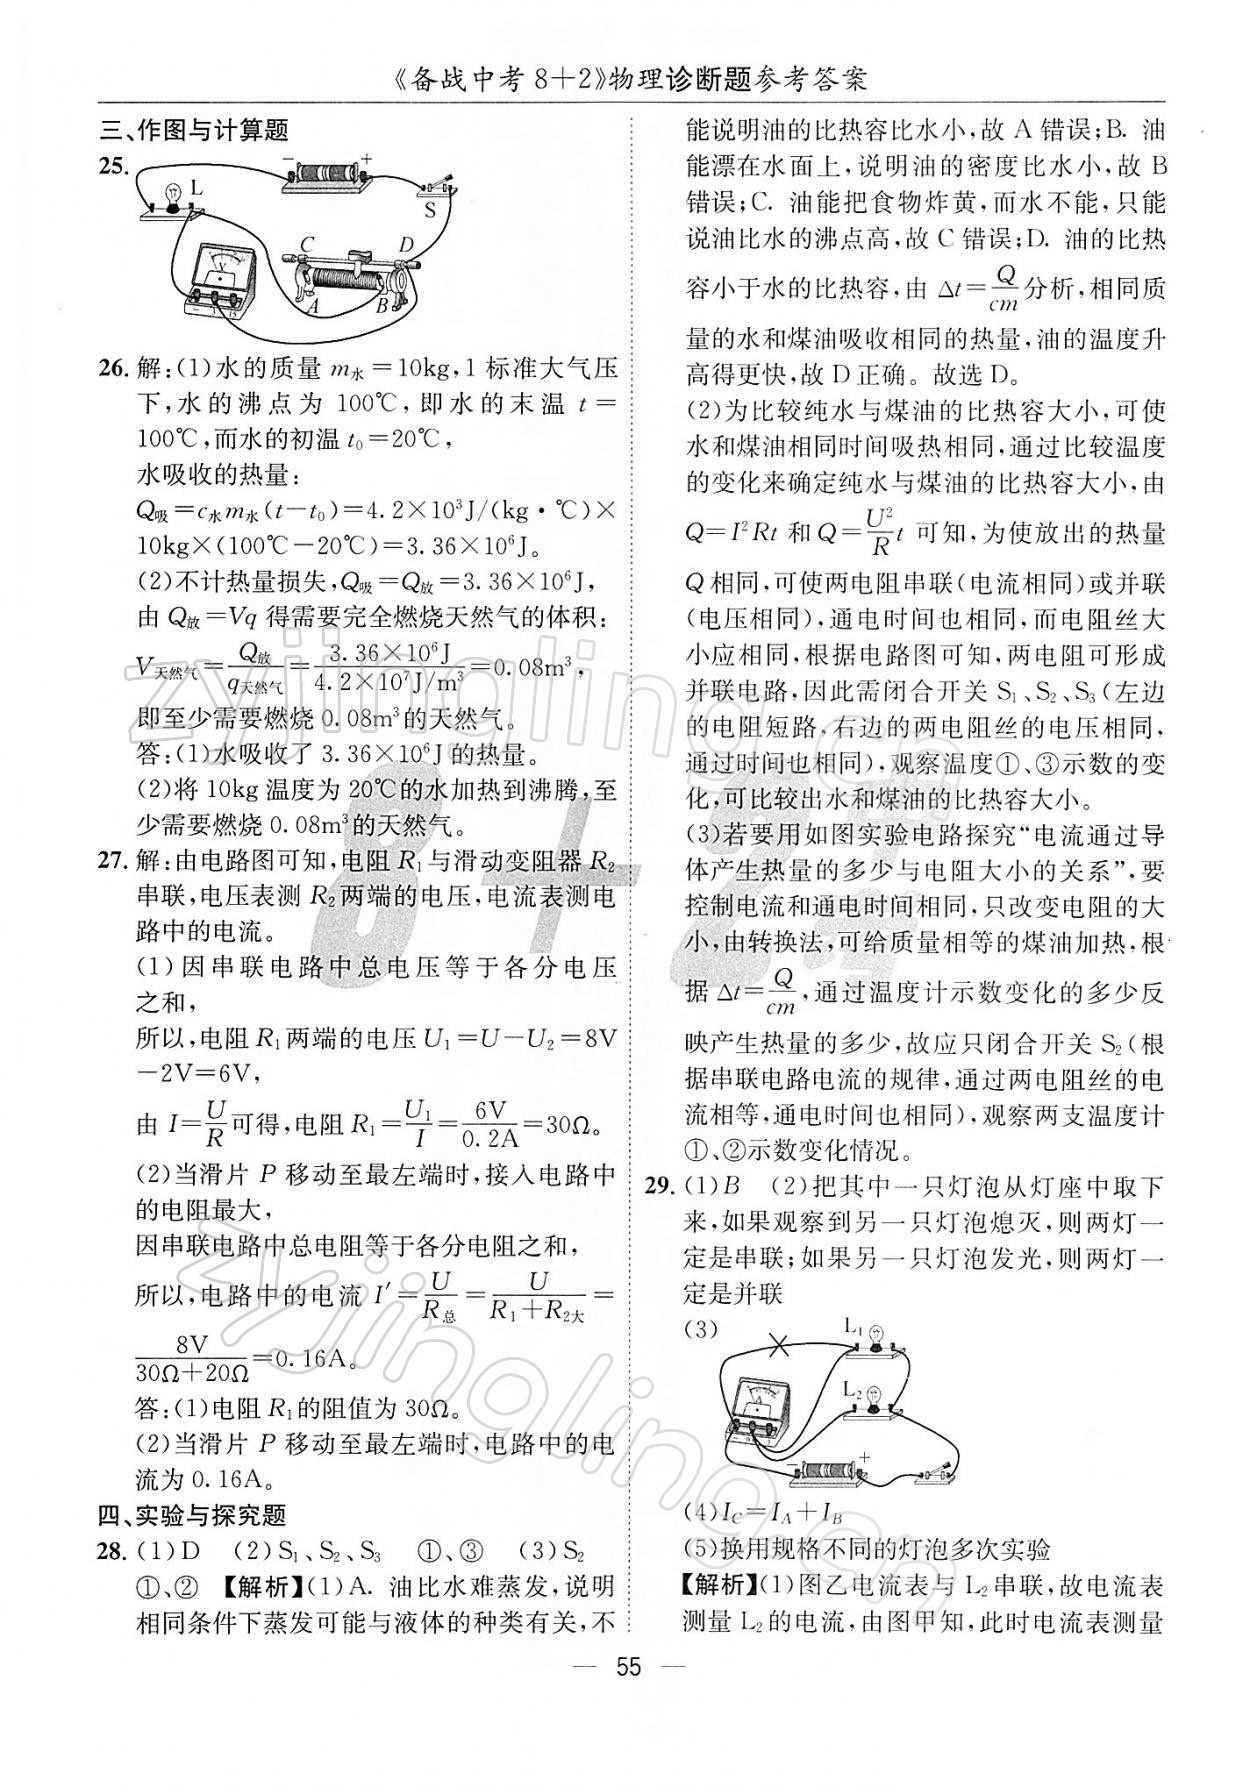 《备战中考8+2》物理诊断题参考答案
三、作图与计算题
25.
L
S
C
D
A
B
26. 解:(1)水的质量 m水=10kg,1 标准大气压
下,水的沸点为 100℃,即水的末温 t=
100℃,而水的初温 t₀=20℃,
水吸收的热量:
Q吸=c水m水(t-t₀)=4.2×10³J/(kg·℃)×
10kg×(100℃-20℃)=3.36×10⁶J。
(2)不计热量损失,Q吸=Q放=3.36×10⁶J,
由 Q放=Vq 得需要完全燃烧天然气的体积:
V天然气=Q放/q天然气=3.36×10⁶J/4.2×10⁷J/m³=0.08m³,
即至少需要燃烧 0.08m³的天然气。
答:(1)水吸收了 3.36×10⁶J的热量。
(2)将 10kg 温度为 20℃的水加热到沸腾,至
少需要燃烧 0.08m³的天然气。
27. 解:由电路图可知,电阻 R₁与滑动变阻器 R₂
串联,电压表测 R₂两端的电压,电流表测电
路中的电流。
(1)因串联电路中总电压等于各分电压
之和,
所以,电阻 R₁两端的电压 U₁=U-U₂=8V
-2V=6V,
由 I=U/R可得,电阻 R₁=U₁/I=6V/0.2A=30Ω。
(2)当滑片 P 移动至最左端时,接入电路中
的电阻最大,
因串联电路中总电阻等于各分电阻之和,
所以,电路中的电流 I′=U/R总=U/(R₁+R₂大)=
8V/(30Ω+20Ω)=0.16A。
答:(1)电阻 R₁的阻值为 30Ω。
(2)当滑片 P 移动至最左端时,电路中的电
流为 0.16A。
四、实验与探究题
28. (1)D (2)S₁、S₂、S₃ ①、③ (3)S₂
①、② 【解析】(1)A. 油比水难蒸发,说明
相同条件下蒸发可能与液体的种类有关,不
能说明油的比热容比水小,故 A 错误;B. 油
能漂在水面上,说明油的密度比水小,故 B
错误;C. 油能把食物炸黄,而水不能,只能
说油比水的沸点高,故 C 错误;D. 油的比热
容小于水的比热容,由 Δt=Q/cm分析,相同质
量的水和煤油吸收相同的热量,油的温度升
高得更快,故 D 正确。故选 D。
(2)为比较纯水与煤油的比热容大小,可使
水和煤油相同时间吸热相同,通过比较温度
的变化来确定纯水与煤油的比热容大小,由
Q=I²Rt 和 Q=U²/R t 可知,为使放出的热量
Q 相同,可使两电阻串联(电流相同)或并联
(电压相同),通电时间也相同,而电阻丝大
小应相同,根据电路图可知,两电阻可形成
并联电路,因此需闭合开关 S₁、S₂、S₃(左边
的电阻短路,右边的两电阻丝的电压相同,
通过时间也相同),观察温度①、③示数的变
化,可比较出水和煤油的比热容大小。
(3)若要用如图实验电路探究“电流通过导
体产生热量的多少与电阻大小的关系”,要
控制电流和通电时间相同,只改变电阻的大
小,由转换法,可给质量相等的煤油加热,根
据 Δt=Q/cm,通过温度计示数变化的多少反
映产生热量的多少,故应只闭合开关 S₂(根
据串联电路电流的规律,通过两电阻丝的电
流相等,通电时间也相同),观察两支温度计
①、②示数变化情况。
29. (1)B (2)把其中一只灯泡从灯座中取下
来,如果观察到另一只灯泡熄灭,则两灯一
定是串联;如果另一只灯泡发光,则两灯一
定是并联
(3)
L₁
L₂
(4)I_C=I_A+I_B
(5)换用规格不同的灯泡多次实验
【解析】(1)图乙电流表与 L₂串联,故电流表
测量 L₂的电流,由图甲知,此时电流表测量
— 55 —
zyjingling.cn
zyjingling.cn